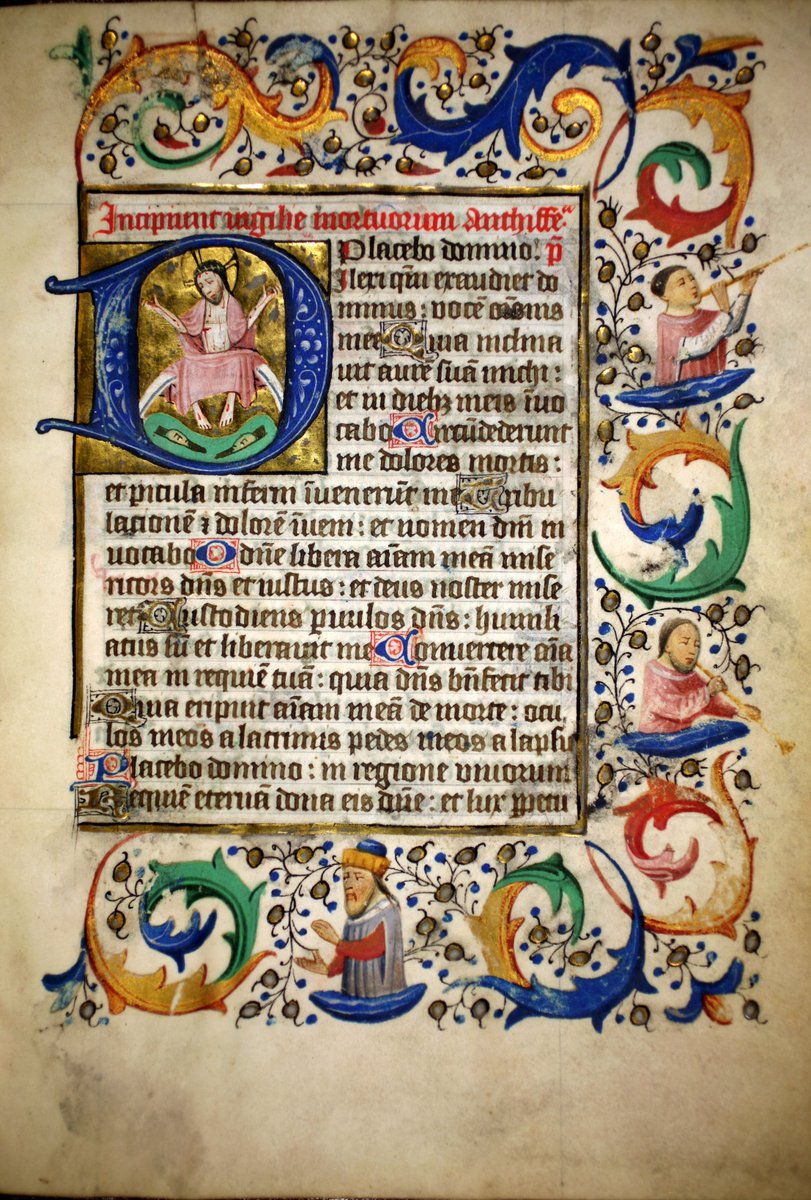 Incipiunt vigilie mortuorum Antiffe
Placebo domino. p̄
Dilexi qm̄ exaudiet do
minus: vocē or̄onis
mee Quia inclina
uit aurē suā michi:
et in dieb3 meis īuo
cabo Circūdederunt
me dolores mortis:
et p̲icula inferni īuenerūt me Tribu
lacionē ⁊ dolorē īueni: et nomen dn̄i in
uocabo O dn̄e libera aīam meā mise
ricors dn̄s et iustus: et deus noster mise
ret̄ Custodiens p̲uulos dn̄s: humili
atus sū et liberauit me Conuertere aīa
mea in requiē tuā: quia dn̄s bn̄fecit tibi
Quia eripuit aīam meā de morte: ocu
los meos a lacrimis pedes meos a lapsu
Placebo domino: in regione viuorum
Requiē eternā dona eis dn̄e: et lux p̲petu